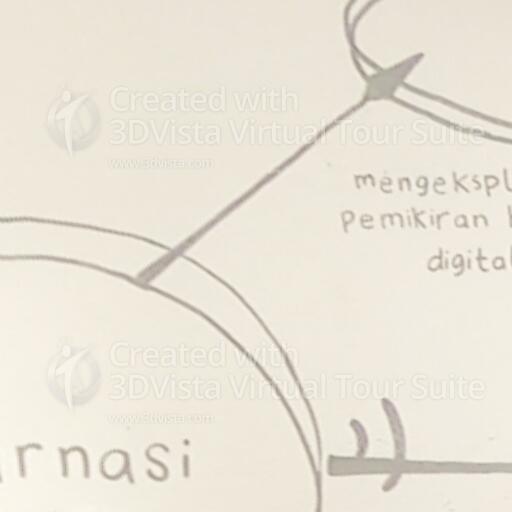 Created with
3DVista Virtual Tour Suite
www.3dvista.com
mengekspl
pemikiran
digital
Created with
3DVista Virtual Tour Suite
www.3dvista.com
rnasi